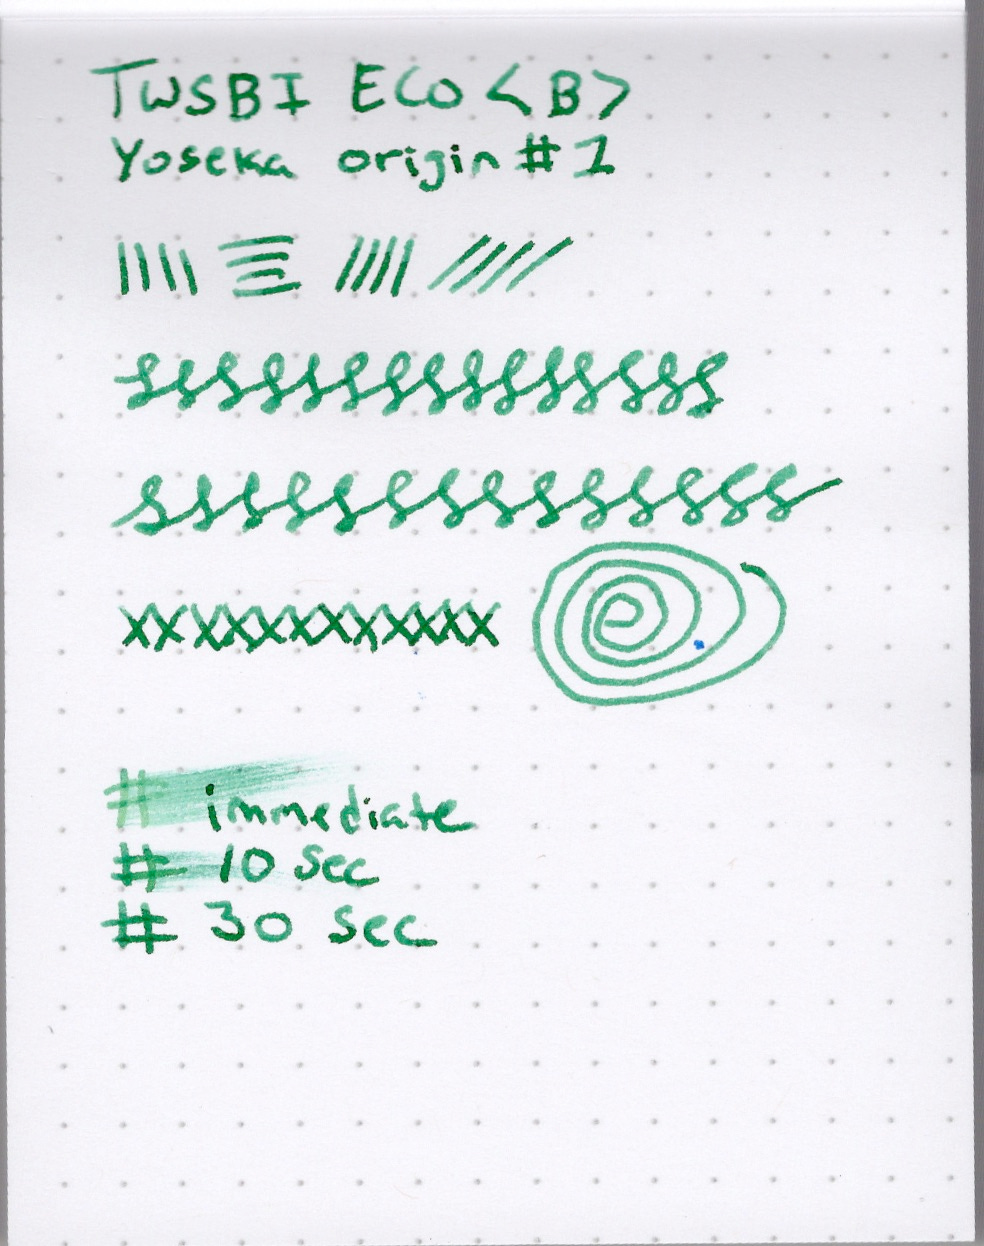 TWSBI ECO <B>
Yoseka origin #1
XXXXXXXXXXXX
# immediate
# 10 sec
# 30 sec